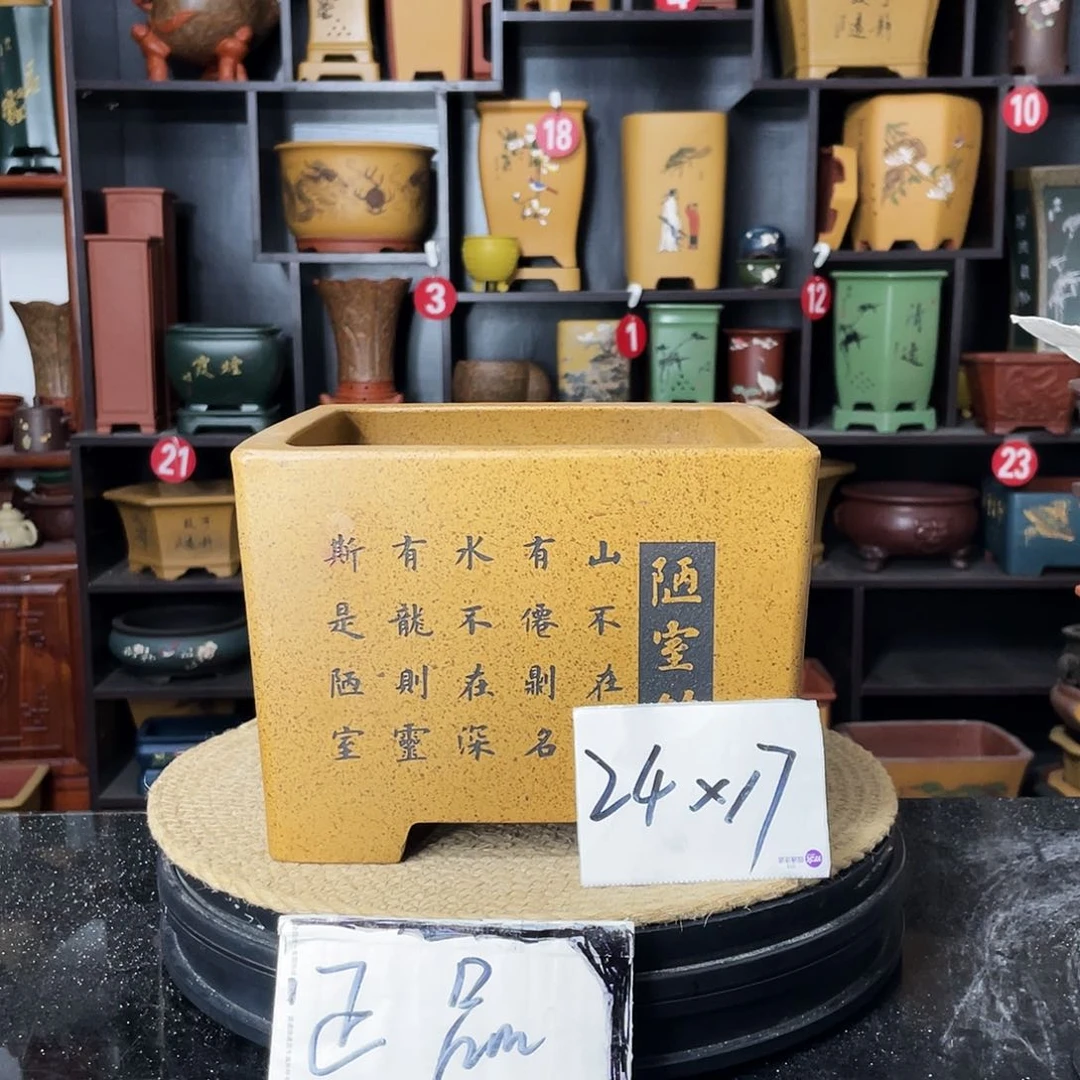 4
10
18
3
12
1
21
23
清遠
陋室
山不在
有僊則名
水不在深
有龍則靈
斯是陋室
24×17
正品